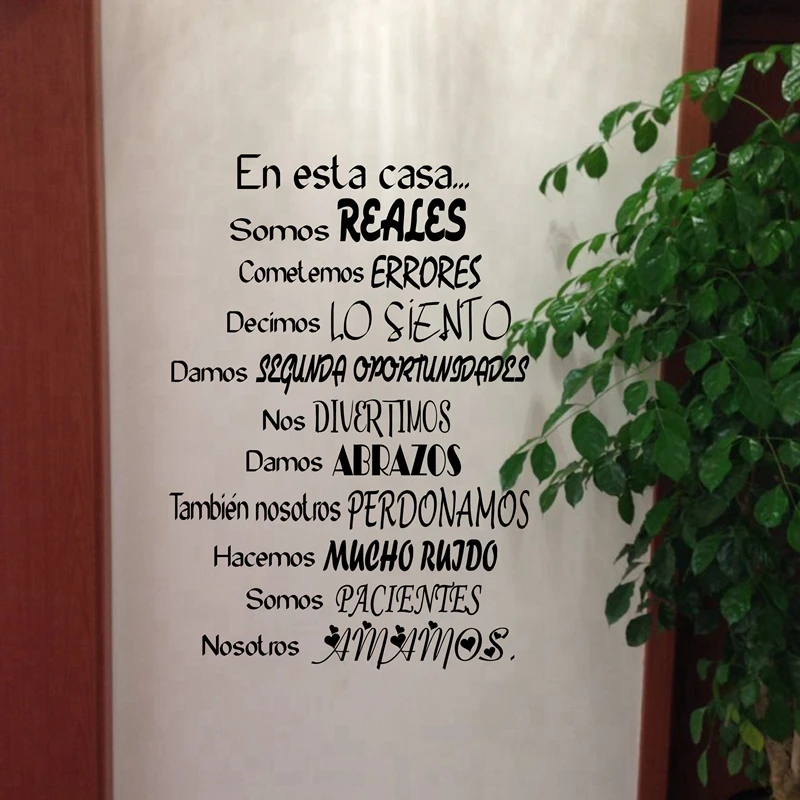 En esta casa...
Somos REALES
Cometemos ERRORES
Decimos LO SiENTO
Damos SEGUNDA OPORTUNIDADES
Nos DIVERTIMOS
Damos ABRAZOS
También nosotros PERDONAMOS
Hacemos MUCHO RUIDO
Somos PACIENTES
Nosotros AMAMOS.